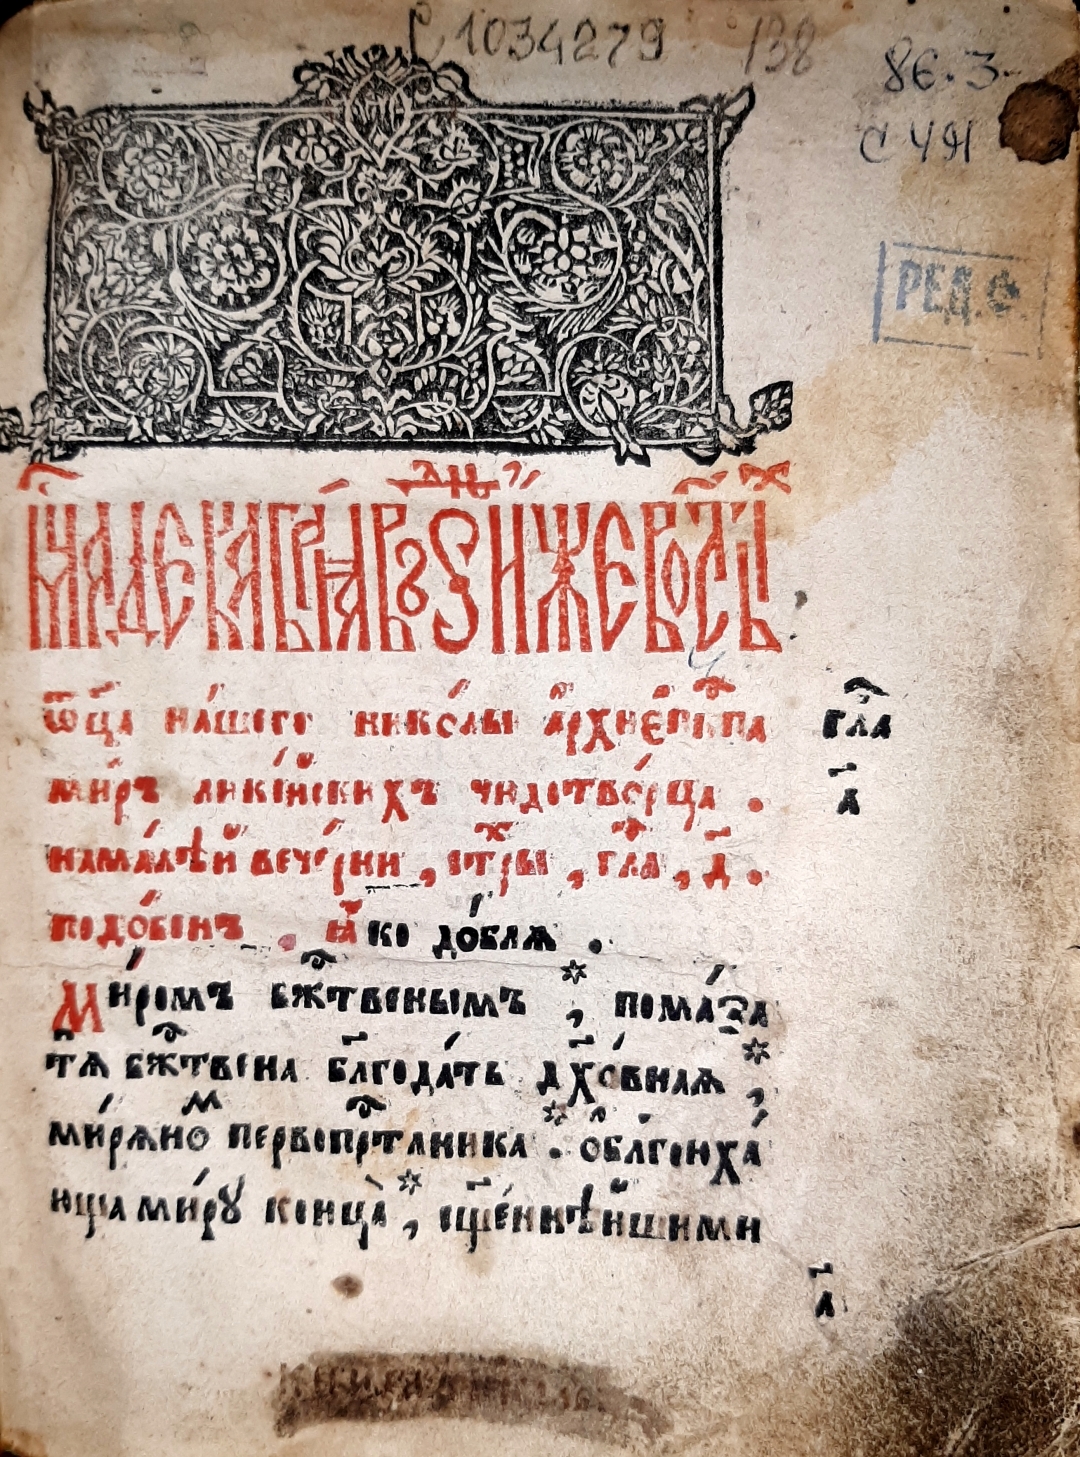 С1034279 138
86.3-
С 491
РЕД.Ф.
Мц҃а декабрѧ въ ѕ҃ дн҃ь, и҆́же во ст҃ы́хъ
ѿц҃а на́шего нико́лы а҆рхиеп҃кпа
гла҃
ми́ръ лики́йскихъ чꙋдотво́рца .
а҃
на ма́лѣй вече́рни , стх҃ры , гла҃ , д҃ .
подо́бенъ . ꙗ҆́ко до́блѧ .
Ми́ромъ бж҃твенымъ * , пома́за
тѧ бж҃твена бл҃года́ть дх҃о́внаѧ * ,
ми́рѧно м пе́рвопрⷭ҇тлника * . о҆бл҃гоꙋха́
юща ми́рꙋ конца̀ * , сщ҃е́ннѣйшими
а҃